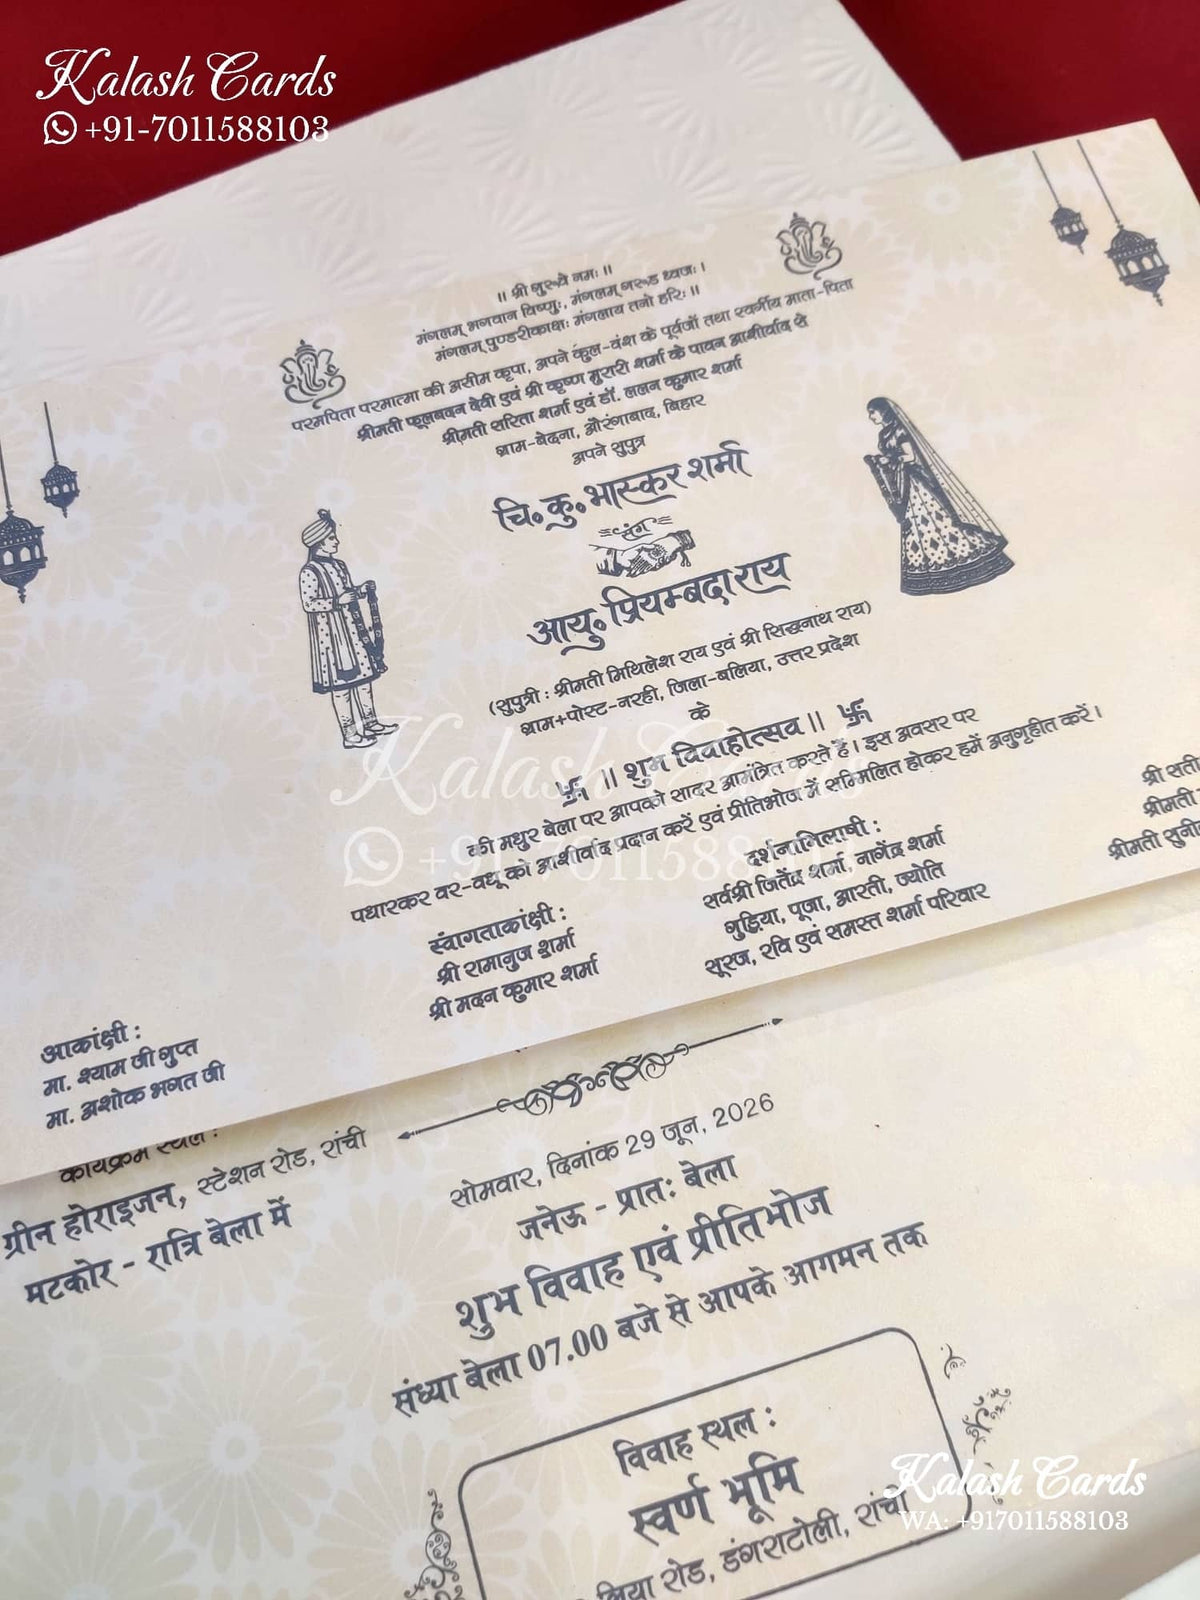 Kalash Cards
+91-7011588103
॥ श्री गुरूवे नमः ॥
मंगलम् भगवान विष्णुः, मंगलम् गरूड ध्वजः ।
मंगलम् पुण्डरीकाक्षः मंगलाय तनो हरिः ॥
परमपिता परमात्मा की असीम कृपा, अपने कुल-वंश के पूर्वजों तथा स्वर्गीय माता-पिता
श्रीमती फूलबदन देवी एवं श्री कृष्ण मुरारी शर्मा के पावन आशीर्वाद से
श्रीमती सरिता शर्मा एवं डॉ. ललन कुमार शर्मा
ग्राम-बेदना, औरंगाबाद, बिहार
अपने सुपुत्र
चि॰ कु॰ भास्कर शर्मा
संग
आयु॰ प्रियम्बदा राय
(सुपुत्री : श्रीमती मिथिलेश राय एवं श्री सिद्धनाथ राय)
ग्राम+पोस्ट-नरही, जिला-बलिया, उत्तर प्रदेश
के
卐 ॥ शुभ विवाहोत्सव ॥ 卐
की मधुर बेला पर आपको सादर आमंत्रित करते हैं। इस अवसर पर
पधारकर वर-वधू को आशीर्वाद प्रदान करें एवं प्रीतिभोज में सम्मिलित होकर हमें अनुगृहीत करें।
Kalash Cards
+91-7011588103
आकांक्षी :
मा. श्याम जी गुप्त
मा. अशोक भगत जी
स्वागताकांक्षी :
श्री रामानुज शर्मा
श्री मदन कुमार शर्मा
दर्शनाभिलाषी :
सर्वश्री जितेंद्र शर्मा, नागेंद्र शर्मा
गुड़िया, पूजा, आरती, ज्योति
सूरज, रवि एवं समस्त शर्मा परिवार
श्री
श्रीमती
श्रीमती
कार्यक्रम स्थल :
ग्रीन होराइजन, स्टेशन रोड, रांची
मटकोर - रात्रि बेला में
सोमवार, दिनांक 29 जून, 2026
जनेऊ - प्रातः बेला
शुभ विवाह एवं प्रीतिभोज
संध्या बेला 07.00 बजे से आपके आगमन तक
विवाह स्थल :
स्वर्ण भूमि
रोड, डंगराटोली, रांची
Kalash Cards
WA: +917011588103